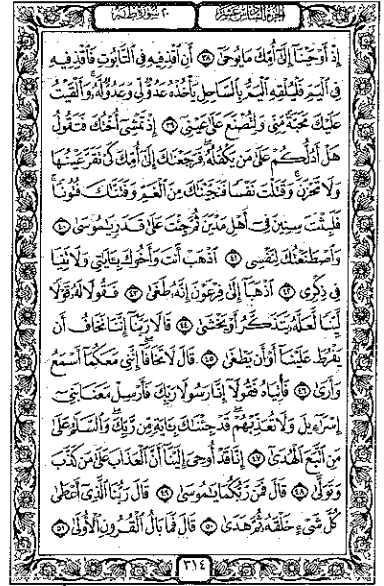 الجزء السادس عشر ٢٠ سورة طه
إِذْ أَوْحَيْنَا إِلَىٰ أُمِّكَ مَا يُوحَىٰ ٣٨ أَنِ اقْذِفِيهِ فِي التَّابُوتِ فَاقْذِفِيهِ
فِي الْيَمِّ فَلْيُلْقِهِ الْيَمُّ بِالسَّاحِلِ يَأْخُذْهُ عَدُوٌّ لِّي وَعَدُوٌّ لَّهُ ۚ وَأَلْقَيْتُ
عَلَيْكَ مَحَبَّةً مِّنِّي وَلِتُصْنَعَ عَلَىٰ عَيْنِي ٣٩ إِذْ تَمْشِي أُخْتُكَ فَتَقُولُ
هَلْ أَدُلُّكُمْ عَلَىٰ مَن يَكْفُلُهُ ۖ فَرَجَعْنَاكَ إِلَىٰ أُمِّكَ كَيْ تَقَرَّ عَيْنُهَا
وَلَا تَحْزَنَ ۚ وَقَتَلْتَ نَفْسًا فَنَجَّيْنَاكَ مِنَ الْغَمِّ وَفَتَنَّاكَ فُتُونًا ۚ
فَلَبِثْتَ سِنِينَ فِي أَهْلِ مَدْيَنَ ثُمَّ جِئْتَ عَلَىٰ قَدَرٍ يَا مُوسَىٰ ٤٠
وَاصْطَنَعْتُكَ لِنَفْسِي ٤١ اذْهَبْ أَنتَ وَأَخُوكَ بِآيَاتِي وَلَا تَنِيَا
فِي ذِكْرِي ٤٢ اذْهَبَا إِلَىٰ فِرْعَوْنَ إِنَّهُ طَغَىٰ ٤٣ فَقُولَا لَهُ قَوْلًا
لَّيِّنًا لَّعَلَّهُ يَتَذَكَّرُ أَوْ يَخْشَىٰ ٤٤ قَالَا رَبَّنَا إِنَّنَا نَخَافُ أَن
يَفْرُطَ عَلَيْنَا أَوْ أَن يَطْغَىٰ ٤٥ قَالَ لَا تَخَافَا ۖ إِنَّنِي مَعَكُمَا أَسْمَعُ
وَأَرَىٰ ٤٦ فَأْتِيَاهُ فَقُولَا إِنَّا رَسُولَا رَبِّكَ فَأَرْسِلْ مَعَنَا بَنِي
إِسْرَائِيلَ وَلَا تُعَذِّبْهُمْ ۖ قَدْ جِئْنَاكَ بِآيَةٍ مِّن رَّبِّكَ ۖ وَالسَّلَامُ عَلَىٰ
مَنِ اتَّبَعَ الْهُدَىٰ ٤٧ إِنَّا قَدْ أُوحِيَ إِلَيْنَا أَنَّ الْعَذَابَ عَلَىٰ مَن كَذَّبَ
وَتَوَلَّىٰ ٤٨ قَالَ فَمَن رَّبُّكُمَا يَا مُوسَىٰ ٤٩ قَالَ رَبُّنَا الَّذِي أَعْطَىٰ
كُلَّ شَيْءٍ خَلْقَهُ ثُمَّ هَدَىٰ ٥٠ قَالَ فَمَا بَالُ الْقُرُونِ الْأُولَىٰ ٥١
٣١٤